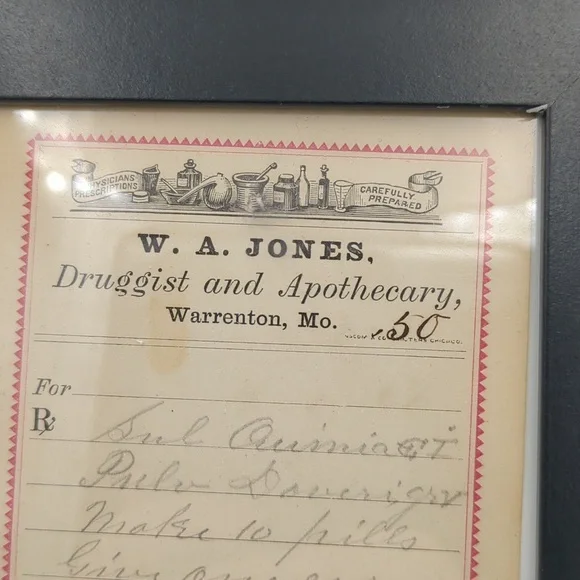 PHYSICIANS PRESCRIPTIONS
CAREFULLY PREPARED
W. A. JONES,
Druggist and Apothecary,
Warrenton, Mo.
.50
For
℞ Sul
Pulv
Make 10 pills
Give one